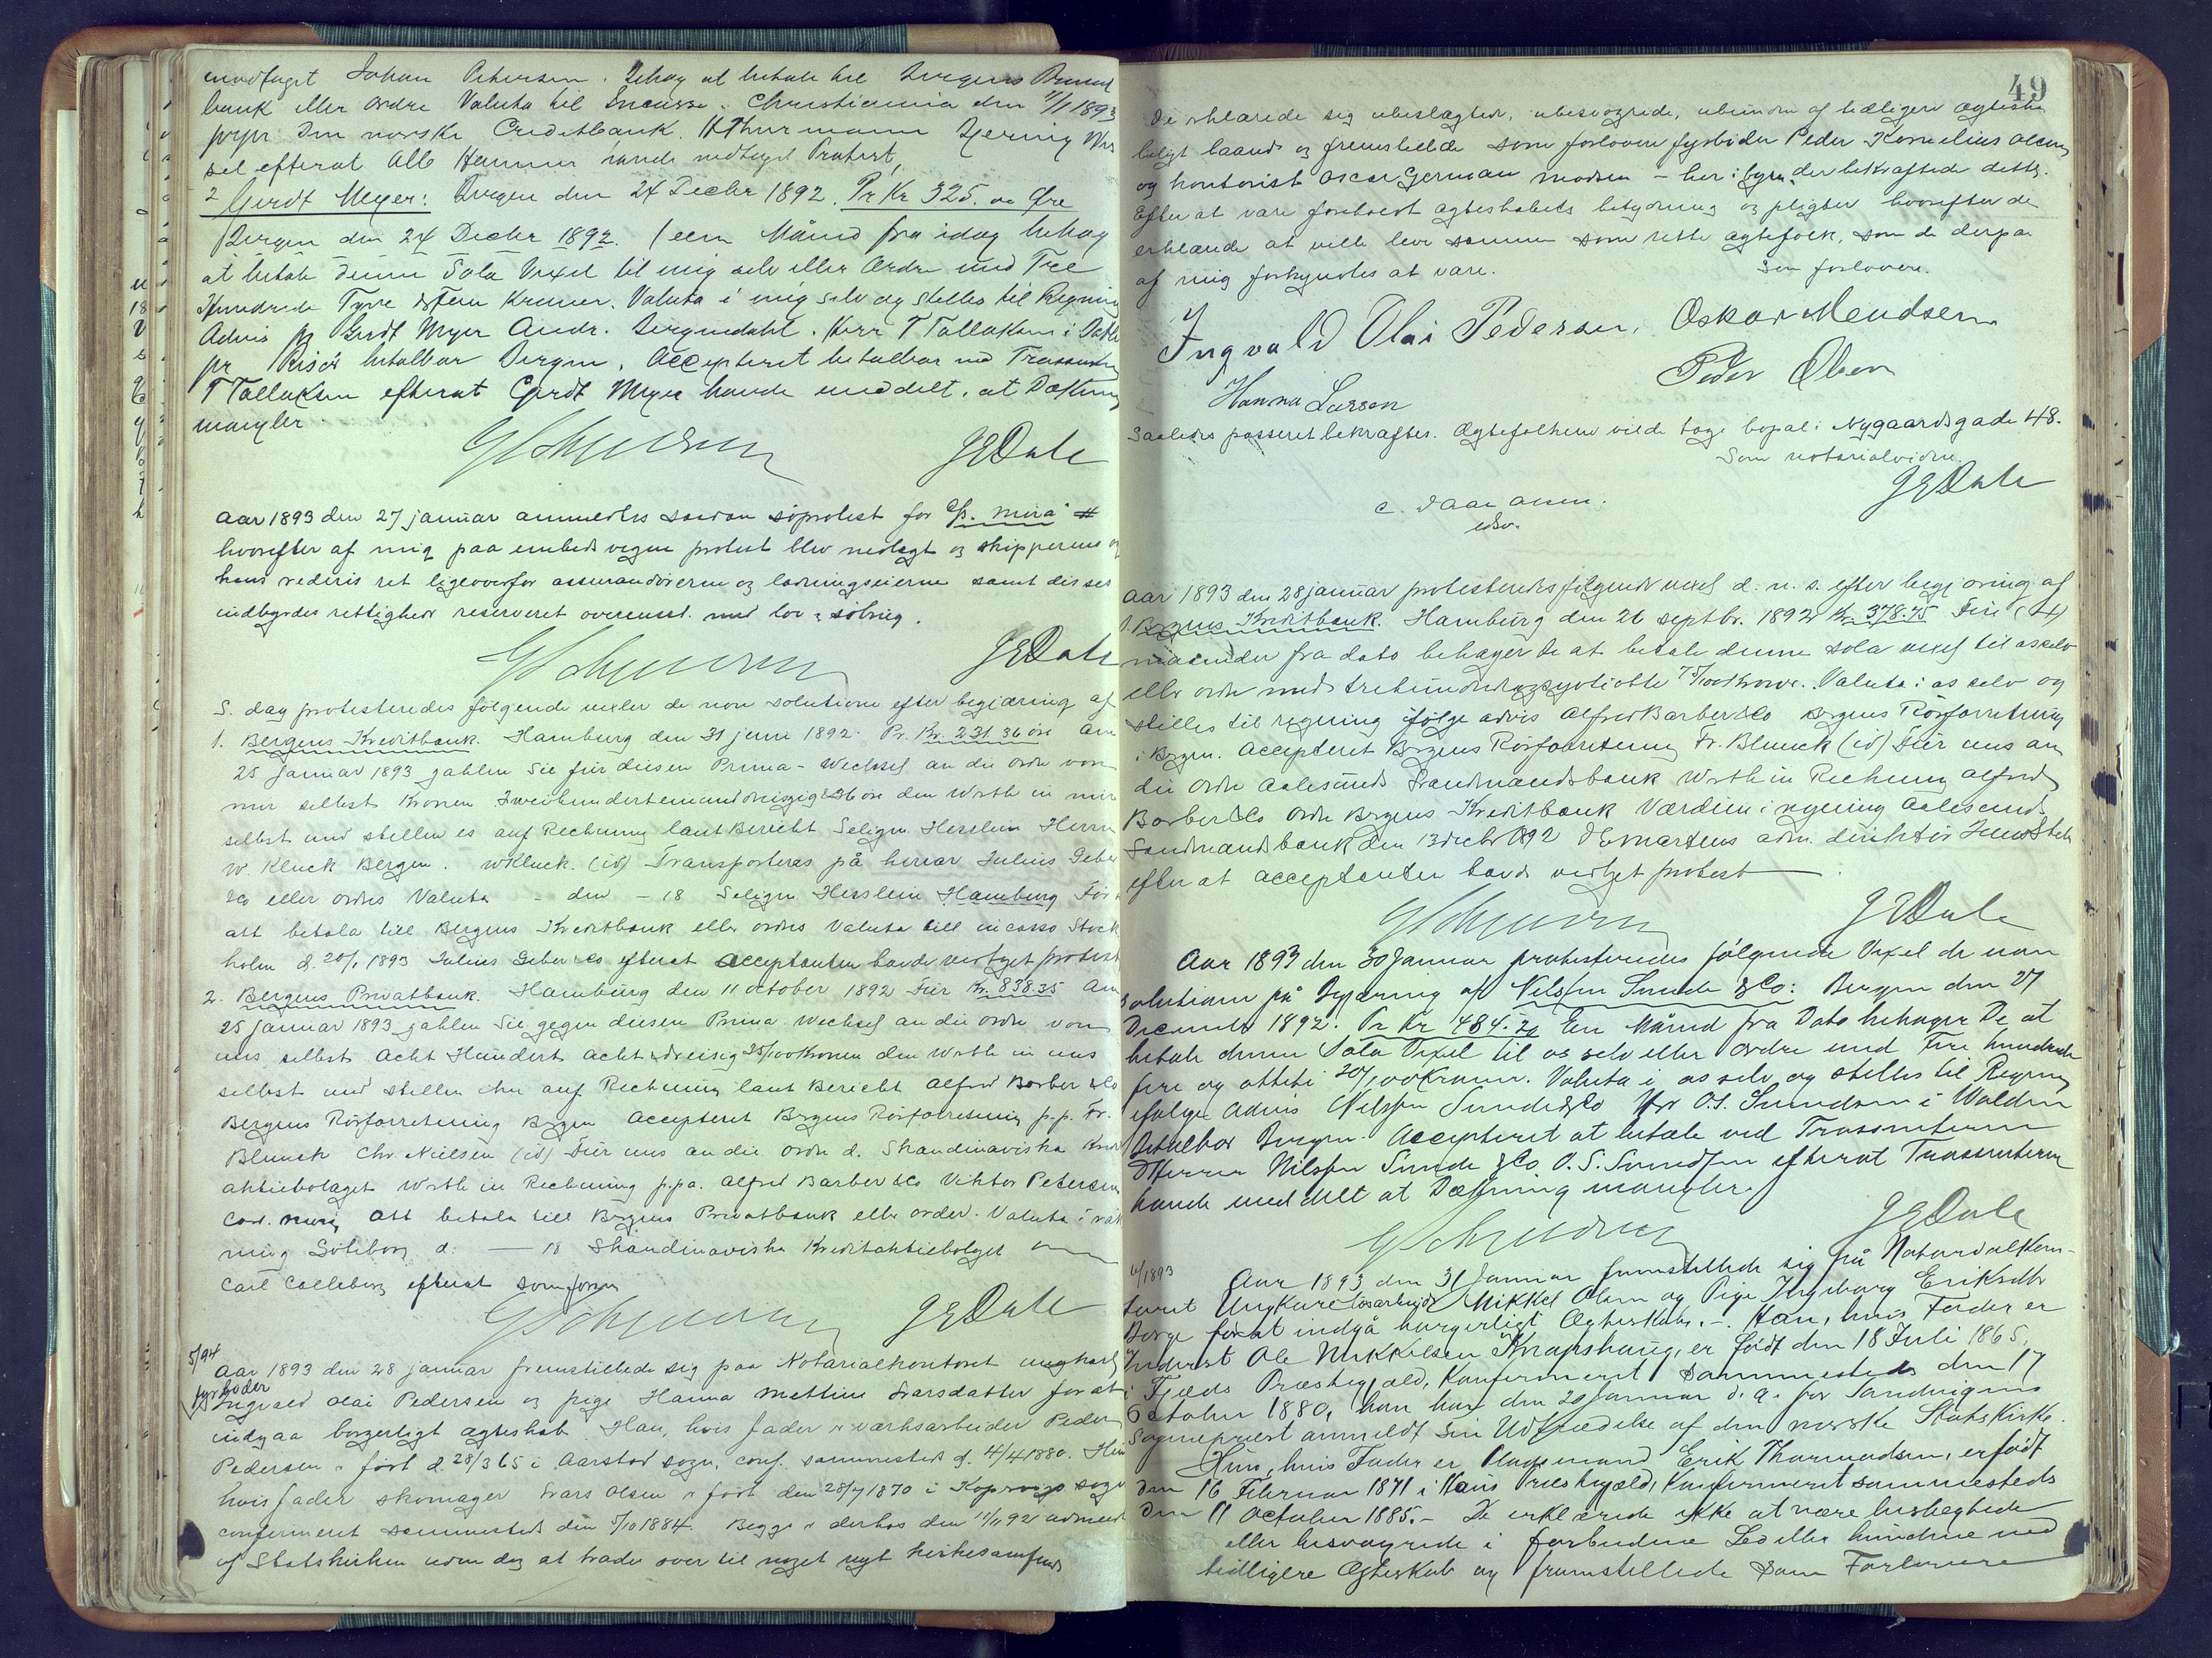 modtaget Johan Petersen. Behag at betale til Bergens Privat
bank eller Ordre Valuta til Incasso. Christiania den 11/1 1893
prpr Den norske Creditbank. H Thurmann
sel efterat Alb Hammer havde nedtaget Protest,
2 Gerdt Meyer: Bergen den 24 Decbr 1892. Pr Kr 325. 00 Øre
Bergen den 24 Decbr 1892. 1 een Måned fra idag behag
at betale denne Sola Vexel til mig selv eller Ordre med Tre
Hundrede Tyve & Fem Kroner. Valuta i mig selv og stilles til Regning
Advis pr Gerdt Meyer Andr. Bergendahl. Herr T Tallaksen i
pr Risör betalbar Bergen. Accepteret betalbar ved Trassenten
T Tallaksen efterat Gerdt Meyer havde meddelt, at Dækning
mangler.
JEDale
Aar 1893 den 27 januar anmeldtes saadan söprotest for S/s. "Mira"
hvorefter af mig paa embeds vegne protest blev nedlagt og skipperens og
hans rederis ret ligeoverfor assurandörerne og ladningseierne samt disses
indbyrdes rettigheder reserveret overensst. med lov & sölovg.
JEDale
S. dag protesteredes følgende vexler de non solutione efter begjæring af
1. Bergens Kreditbank. Hamburg den 21 juni 1892. Pr. Kr. 231 36 öre Am
25 Januar 1893 zahlen Sie für diesen Prima-Wechsel an die Ordre von
mir selbst Kronen Zweihunderteinunddreiszig & 36 öre den Werth in mir
selbst und stellen es auf Rechnung laut Bericht Seligm. Hesslein Herrn
W. Kluck Bergen. W Kluck. (id) Transporteras på herrar Julius Geber
&co eller ordres Valuta - den - 18 Seligm. Hesslein Hamburg För
att betala till Bergens Kreditbank eller ordres Valuta till incasso Stock
holm d. 20/1 1893 Julius Geber &co efterat Acceptanten havde vedtaget protest
2. Bergens Privatbank. Hamburg den 11 october 1892 Für Kr. 838 35 Am
25 Januar 1893 zahlen Sie gegen diesen Prima Wechsel an die Ordre von
uns selbst Acht Hundert Acht & dreisig 35/100 Kronen den Werth in uns
selbst und stellen ihn auf Rechnung laut Bericht Alfred Barber &Co
Bergens Rörforretning Bergen Accepteret Bergens Rörforretning p.p. Fr.
Blunck Chr. Nielsen (id) Für uns an die Ordre d. Skandinaviska Kredit
aktiebolaget Werth in Rechnung p.pa. Alfred Barber &Co Viktor Petersen
Att betala till Bergens Privatbank eller order. Valuta i räk
ning Göteborg d: — 18 Skandinaviska Kreditaktiebolaget
Carl Calleborg efterat som foran
JEDale
5/94
Aar 1893 den 28 januar fremstillede sig paa Notarialkontoret ungkarl
fyrböder
Ingvald Olai Pedersen og pige Hanna Mettine Larsdatter for at
indgaa borgerligt ægteskab. Han, hvis fader er værksarbeider Peder
Pedersen er født d. 28/3 65 i Aarstad sogn, conf. sammesteds d. 4/4 1880. Hun
hvis fader skomager Lars Olsen er født den 28/7 1870 i Kopervigs sogn
confirmeret sammesteds den 5/10 1884. Begge er derhos den 11/11 92 udmeldt
af Statskirken uden dog at træde over til noget nyt kirkesamfund
49
De erklærede sig ubeslægtede, ubesvogrede, ubundne af tidligere ægteska
beligt baand og fremstillede som forlovere fyrböder Peder Kornelius Olsen
og kontorist Oscar German Madsen - her i byen, der bekræftede dette.
Efter at være foreholdt ægteskabets betydning og pligter hvorefter de
erklærede at ville leve sammen som rette ægtefolk, som de derpaa
af mig forkyndtes at være.
Som forlovere.
Ingvald Olai Pedersen, Oskar Mendsen
Peder Olsen
Hanna Larsen
Saaledes passeret bekræftes. Ægtefolkene vilde tage bopæl i Nygaardsgade 48.
Som notarialvidne
JEDale
C. Daae Olsen;
edsv.
Aar 1893 den 28 januar protesteredes følgende vexel d. n. s. efter begjæring af
1. Bergens Kreditbank. Hamburg den 26 septbr. 1892 Kr. 378.75 Fire (4)
maaneder fra dato behager De at betale denne sola vexel til os selv
eller ordre med trehundredeogsyvtiotte 75/100 Kroner. Valuta i os selv og
stilles til regning ifølge advis Alfred Barber &Co Bergens Rörforretning
i Bergen. Accepteret Bergens Rörforretning Fr. Blunck (id) Für uns an
die Ordre Aalesunds Landmandsbank Werth in Rechnung Alfred
Barber &Co Ordre Bergens Kreditbank Værdien i regning Aalesunds
Landmandsbank den 13 decbr 1892 Martens adm. direktör
efter at acceptanten havde vedtaget protest
JEDale
Aar 1893 den 30 Januar protesteredes følgende Vexel de non
solutione på Begjæring af Nilssen Sunde &Co: Bergen den 27
December 1892. Pr Kr 484.20 En Måned fra Dato behager De at
betale denne Sola Vexel til os selv eller Ordre med Fire hundrede
fire og otteti 20/100 Kroner. Valuta i os selv og stilles til Regning
ifølge Advis Nilssen Sunde &Co Hr O.S. Sundsen i Walden
Betalbar Bergen. Accepteret at betale ved Trassenterne
DHerrer Nilssen Sunde &Co. O.S. Sundsen efterat Trassenterne
havde meddelt at Dækning mangler.
JEDale
6/1893
Aar 1893 den 31 Januar fremstillede sig på Notarialkon-
toret Ungkarl løsarbejder Mikkel Olsen og Pige Ingeborg Eriksdtr
Berge for at indgå borgerligt Ægteskab. - Han, hvis Fader er
Inderst Ole Mikkelsen Knapshaug, er født den 18 Juli 1865
i Fjelds Præstegjæld, Konfirmeret sammesteds den 17
October 1880, han har den 20 Januar d. A. for Sandvigens
Sognepræst anmeldt sin Udtrædelse af den norske Statskirke.
Hun, hvis Fader er Erik Thormodsen, er født
den 16 Februar 1871 i Haus Præstegjæld, Konfirmeret sammesteds
den 11 October 1885. - De erklærede ikke at være beslægtede
eller besvogrede i forbudne Led eller bundne ved
tidligere Ægteskab og fremstillede som Forlovere